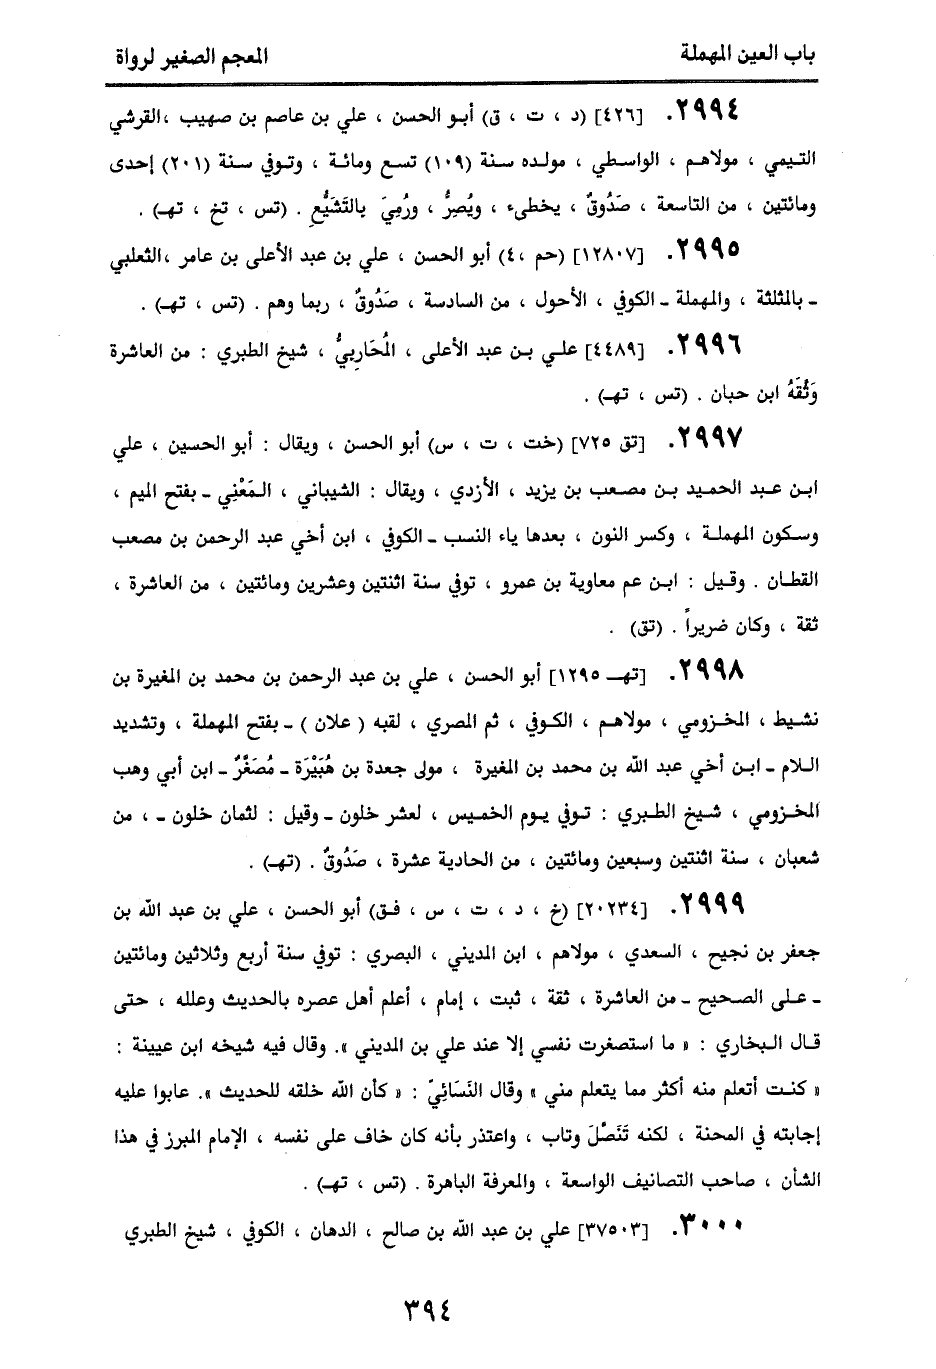 باب العين المهملة
المعجم الصغير لرواة
٢٩٩٤. [٤٢٦] (د ، ت ، ق) أبو الحسن ، علي بن عاصم بن صهيب ،القرشي
التيمي ، مولاهم ، الواسطي ، مولده سنة (١٠٩) تسع ومائة ، وتوفي سنة (٢٠١) إحدى
ومائتين ، من التاسعة ، صَدُوقٌ ، يخطىء ، ويُصِرُّ ، ورُمِيَ بالتَشَيُّعِ . (تس ، تخ ، تهـ) .
٢٩٩٥. [١٢٨٠٧] (حم ،٤) أبو الحسن ، علي بن عبد الأعلى بن عامر ،الثعلبي
ـ بالمثلثة ، والمهملة ـ الكوفي ، الأحول ، من السادسة ، صَدُوقٌ ، ربما وهم . (تس ، تهـ) .
٢٩٩٦. [٤٤٨٩] علي بن عبد الأعلى ، المُحَارِبيُّ ، شيخ الطبري : من العاشرة
وَثَّقَهُ ابن حبان . (تس ، تهـ) .
٢٩٩٧. [تق ٧٢٥] (خت ، ت ، س) أبو الحسن ، ويقال : أبو الحسين ، علي
ابن عبد الحميد بن مصعب بن يزيد ، الأزدي ، ويقال : الشيباني ، المَعْنِي ـ بفتح الميم ،
وسكون المهملة ، وكسر النون ، بعدها ياء النسب ـ الكوفي ، ابن أخي عبد الرحمن بن مصعب
القطان . وقيل : ابن عم معاوية بن عمرو ، توفي سنة اثنتين وعشرين ومائتين ، من العاشرة ،
ثقة ، وكان ضريراً . (تق) .
٢٩٩٨. [تهـ ١٢٩٥] أبو الحسن ، علي بن عبد الرحمن بن محمد بن المغيرة بن
نشيط ، المخزومي ، مولاهم ، الكوفي ، ثم المصري ، لقبه ( علان ) ـ بفتح المهملة ، وتشديد
اللام ـ ابن أخي عبد الله بن محمد بن المغيرة ، مولى جعدة بن هُبَيْرَة ـ مُصَغّرٌ ـ ابن أبي وهب
المخزومي ، شيخ الطبري : توفي يوم الخميس ، لعشر خلون ـ وقيل : لثمان خلون ـ ، من
شعبان ، سنة اثنتين وسبعين ومائتين ، من الحادية عشرة ، صَدُوقٌ . (تهـ) .
٢٩٩٩. [٢٠٢٣٤] (خ ، د ، ت ، س ، فق) أبو الحسن ، علي بن عبد الله بن
جعفر بن نجيح ، السعدي ، مولاهم ، ابن المديني ، البصري : توفي سنة أربع وثلاثين ومائتين
ـ على الصحيح ـ من العاشرة ، ثقة ، ثبت ، إمام ، أعلم أهل عصره بالحديث وعلله ، حتى
قال البخاري : « ما استصغرت نفسي إلا عند علي بن المديني ». وقال فيه شيخه ابن عيينة :
« كنت أتعلم منه أكثر مما يتعلم مني » وقال النَسَائِيّ : « كأن الله خلقه للحديث ». عابوا عليه
إجابته في المحنة ، لكنه تَنَصَّلَ وتاب ، واعتذر بأنه كان خاف على نفسه ، الإمام المبرز في هذا
الشأن ، صاحب التصانيف الواسعة ، والمعرفة الباهرة . (تس ، تهـ) .
٣٠٠٠. [٣٧٥٠٣] علي بن عبد الله بن صالح ، الدهان ، الكوفي ، شيخ الطبري
٣٩٤